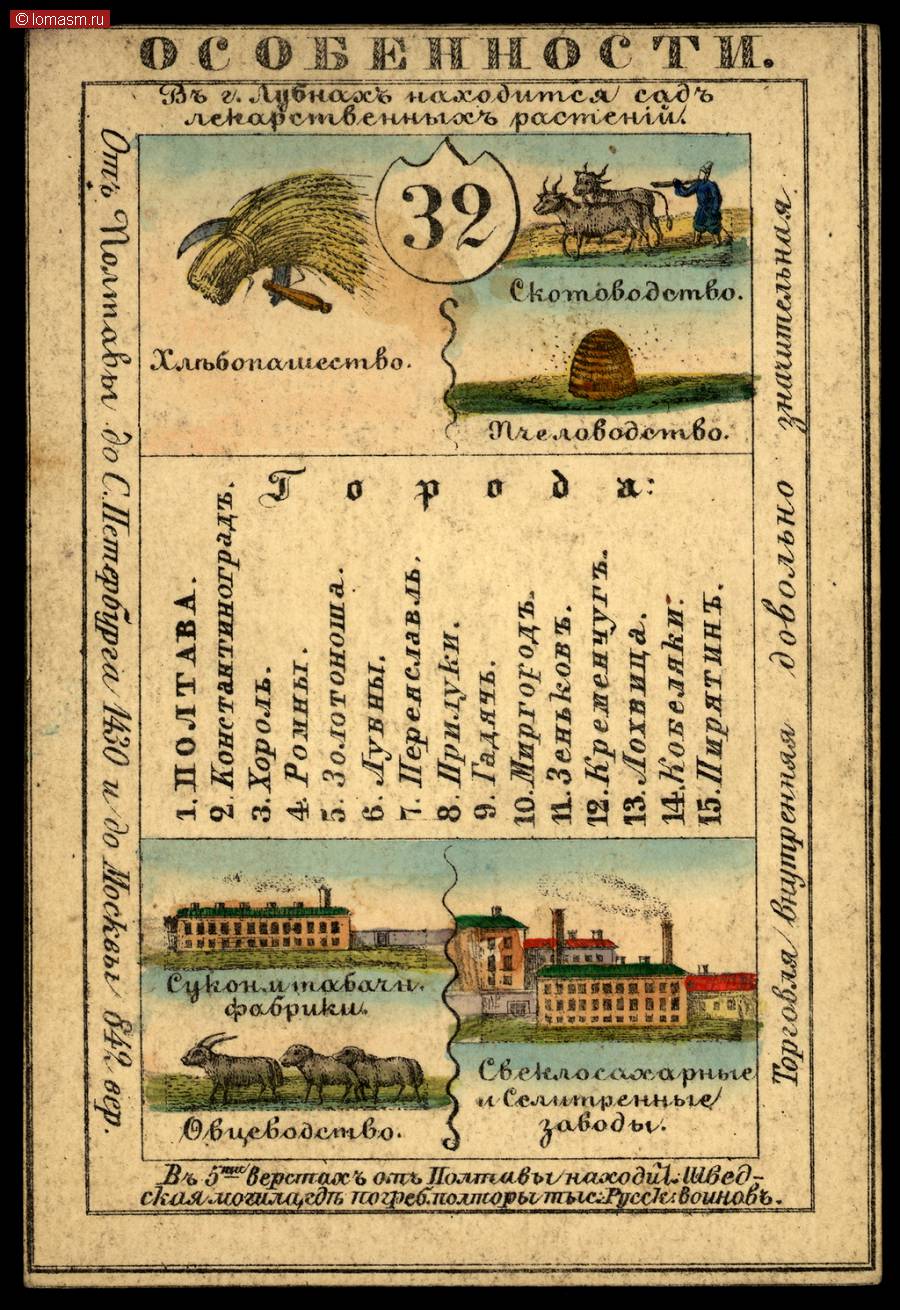 © lomasm.ru
ОСОБЕННОСТИ.
Въ г. Лубнахъ находится садъ
лекарственныхъ растенiй.
Отъ Полтавы до С. Петербурга 1430 и до Москвы 842 вер.
32
Хлѣбопашество.
Скотоводство.
Пчеловодство.
Города:
1. ПОЛТАВА.
2. Константиноградъ.
3. Хороль.
4. Ромны.
5. Золотоноша.
6. Лубны.
7. Переяславль.
8. Прилуки.
9. Гадячь.
10. Миргородъ.
11. Зеньковъ.
12. Кременчугъ.
13. Лохвица.
14. Кобеляки.
15. Пирятинъ.
Торговля внутренняя довольно значительная
Сукон. и табачн.
фабрики.
Овцеводство.
Свеклосахарные
и Селитренные
заводы.
Въ 5ти верстахъ отъ Полтавы находит. Швед-
ская могила, гдѣ погреб. полторы тыс. Русск. воиновъ.